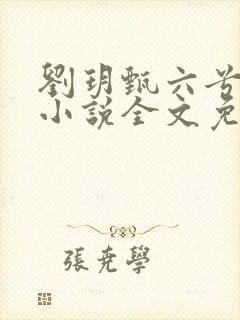 劉玥甄六兮
小說全文免
張堯學